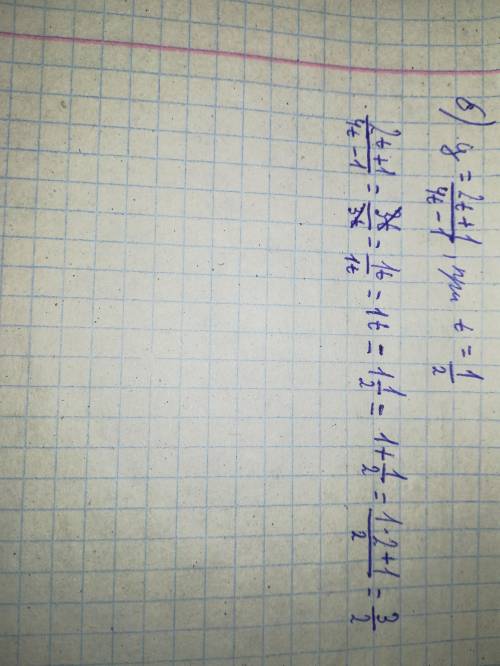 б) y = 2t+1/4t-1, при t = 1/2
2t+1/4t-1 = 3t/3t = 1t/1t = 1t = 1 1/2 = 1 + 1/2 = 1·2+1/2 = 3/2